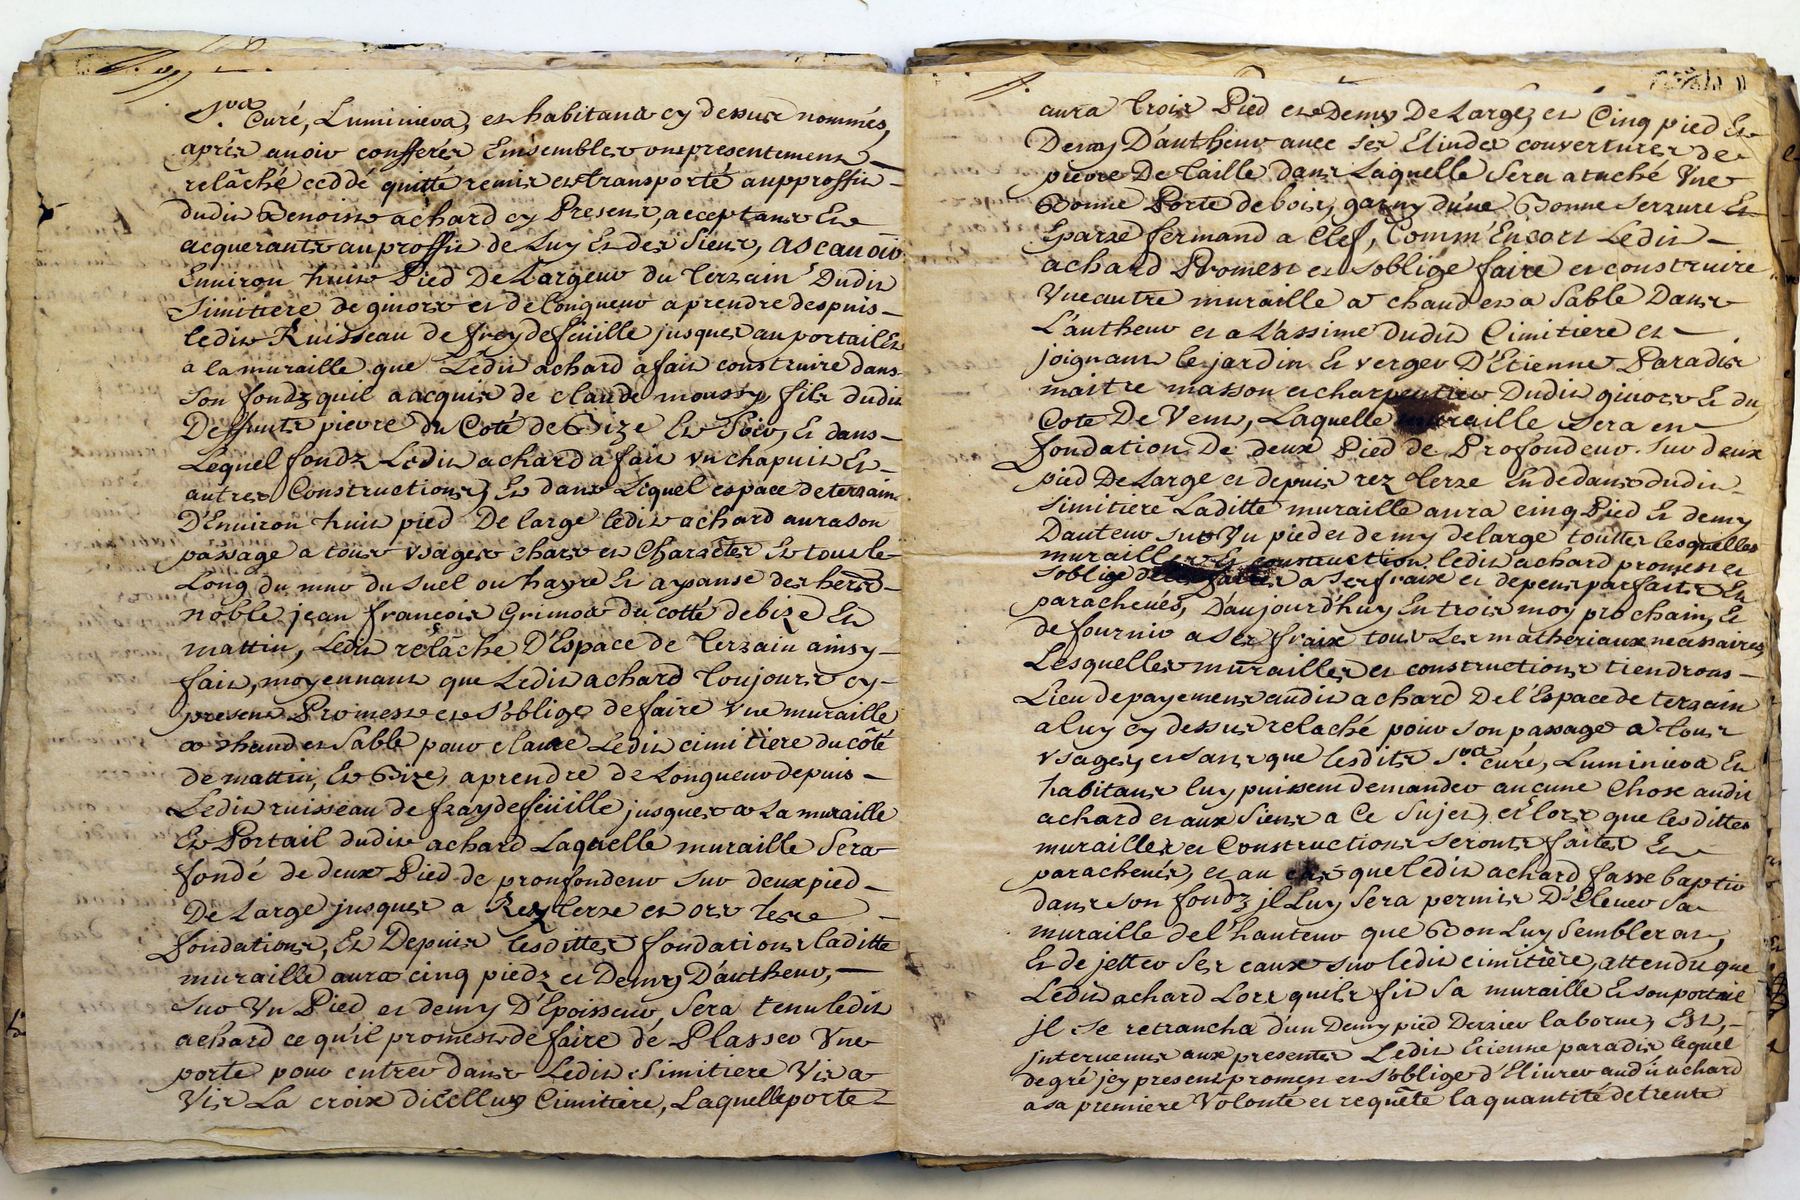 Srs. Curé, Luminiers, et habitans cy dessus nommés,
aprés avoir confferés Ensembles ont presentement
relâché ceddé quitté remis et transporté aupproffit
dudit Benoist achard cy Present, acceptant Et
acquerant au proffit de Luy Et des Siens, ascavoir
Environ huit Pied De Largeur du terrain Dudit
Simitiere de givors et de longueur a prendre despuis
ledit Ruisseau de freydefeüille jusques au portail Et
a la muraille que Ledit achard a fait construire dans
Son fondz quil a acquis de claude moussy fils dudit
Deffunt pierre du Coté de Bize Et Soir, Et dans
Lequel fondz Ledit achard a fait un chapuit Et
autres Constructions, Et dans Lequel espace de terrain
D'Environ huit pied De large ledit achard aura son
passage a tous usages chars et Charettes Et tout le
Long du mur du Suel ou hayre Et aysanse des hers de
noble jean françois Grimod du cotté de bize Et
mattin, Ledit relâche D'Espace de terrain ainsy
fait, moyennant que Ledit achard toujours cy
present Promest et s'oblige de faire Vne muraille
a chaud et Sable pour claure Ledit cimitiere du côté
de mattin, Et Bize, a prendre de Longueur depuis
Ledit ruisseau de fraydefeüille jusques a La muraille
Et Portail dudit achard Laquelle muraille Sera
fondé de deux Pied de pronfondeur sur deux pied
De Large jusques a Rez terre et ors les
fondations, Et Depuis lesdittes fondations laditte
muraille aura cinq piedz et Demy D'autheur,
sur Un Pied et demy D'Epoisseur, Sera tenu ledit
achard ce qu'il promest de faire de Plasser Vne
porte pour entrer dans Ledit Simitiere Vis a
Vis La croix diCelluy Cimitiere, Laquelle porte
aura trois Pied et Demy De Large, et Cinq pied Et
Demy D'autheur avec ses Elindes couvertures de
pierre De taille dans Laquelle Sera ataché Vne
Bonne Porte de bois, garny d'une Bonne Serrure Et
Eparre fermand a Clef, Comm'Encort Ledit
achard Promest et s'oblige faire et construire
Vne autre muraille a chaud et a Sable Dans
L'autheur et a L'assime dudit Cimitiere et
joignant le jardin Et verger D'Etienne Paradis
maitre masson et charpentier Dudit givors Et du
Coté De Vent, Laquelle muraille Sera en
fondation De deux Pied de Profondeur sur deux
pied De Large et depuis rez terre En dedans dudit
simitiere Laditte muraille aura cinq Pied Et demy
Dauteur sur Un pied et demy de large touttes lesquelles
murailles Et construction ledit achard promest et
s'oblige de faire a ses fraix et depens parfaites Et
parachevés, D'aujourd'huy En trois moy prochain, Et
de fournir a Ses fraix tous Les mathériaux necessaires
Lesquelles murailles et constructions tiendront
Lieu de payement audit achard De l'Espace de terrain
a luy cy dessus relaché pour son passage a tous
usages, et sans que lesdits Srs. curé, Luminiers Et
habitans luy puissent demander aucune Chose audit
achard et aux Siens a Ce Sujet, et lors que lesdittes
murailles et Constructions seront faites Et
parachevés, et au cas que ledit achard fasse baptir
dans son fondz jl Luy Sera permis D'Elever Sa
muraille de l'hauteur que Bon Luy Semblerat,
Et de jetter Ses eaux sur ledit cimitiere, attendu que
Ledit achard Lors quil fit Sa muraille Et son portail
jl se retrancha d'un Demy pied Derrier la borne, Est,
intervenus aux presentes Ledit Etienne paradis lequel
de gré jcy present promest et s'oblige d'Elivrer aud't achard
a sa premiere Volonté et requête la quantité de trente